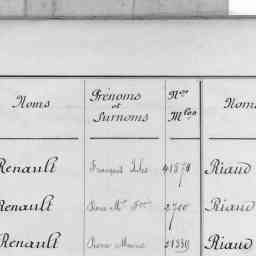 Noms Prénoms et Surnoms Nos Mles Noms
Renault François Jules 41571 Riaud
Renault Pierre Mie 2700 Riaud
Renault Pierre Marie 21339 Riaud